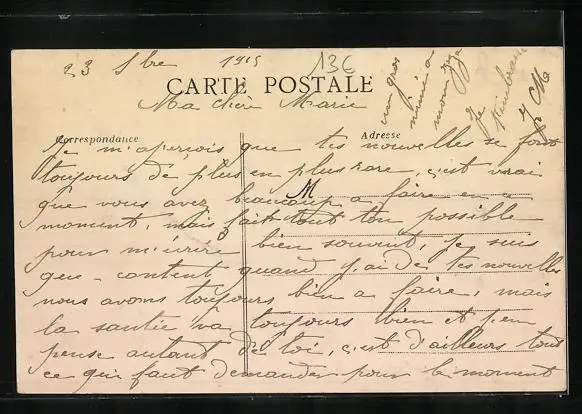 23 9bre 1915 136
CARTE POSTALE
Ma chère Marie
Correspondance Adresse
Je m'aperçois que tes nouvelles se font
toujours de plus en plus rare, c'est vrai
que vous avez beaucoup a faire en ce
moment, mais fait tout ton possible
pour m'écrire bien souvent, Je suis
que content quand j'ai de tes nouvelles
nous avons toujours bien a faire, mais
la santée va toujours bien et peu
pense autant de toi, c'est d'ailleurs tout
ce qui faut demander pour le moment
un gros
mimi a
mon
Je
t'embrasse